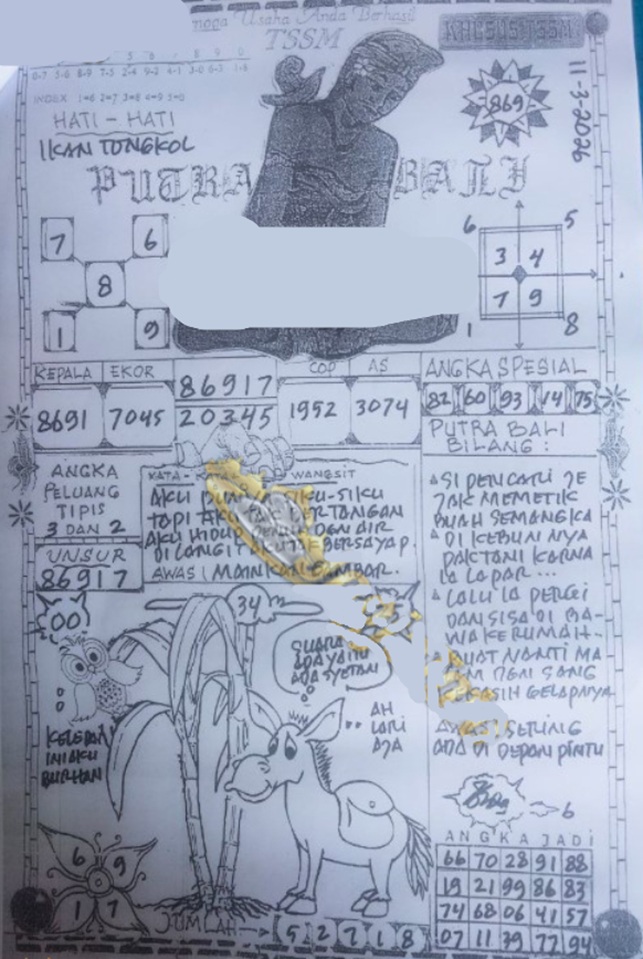 Usaha Anda Berhasil
TSSM
KHUSUS TSSM
5 6 8 9 0
0-7 5-0 8-9 7-5 2-4 9-2 4-1 3-0 6-3 1-8
INDEX 1=6 2=7 3=8 4=9 5=0
869
11-3-2026
HATI - HATI
IKAN TONGKOL
PUTRA BALI
7 6
8
1 9
6 5
3 4
7 9
1 8
KEPALA EKOR COP AS ANGKA SPESIAL
86917
8691 7045 20345 1952 3074
82 60 93 14 75
PUTRA BALI
BILANG:
ANGKA
PELUANG
TIPIS
3 DAN 2
UNSUR
86917
KATA- WANGSIT
AKU SIKU-SIKU
TAPI
AKU HIDUP DGN AIR
DI LANGIT BERSAYAP
AWAS! MAINKAN GAMBAR.
SI PENCARI JE
JAK MEMETIK
BUAH SEMANGKA
DI KEBUN NYA
PAK TANI KARNA
IA LAPAR...
LALU IA PERGI
DAN SISA DI BA-
WA KERUMAH-
BUAT NANTI MA
SANG
GELAPNYA
AWAS! SERING
ADA DI DEPAN PINTU
00
34
SUARA
APA YA ITU
ADA SYETAN
AH
LARI
AJA
INI AKU
BURHAN
6 9
1 7
JUMLAH → 5 2 7 1 8
6
ANGKA JADI
66 70 28 91 88
19 21 99 86 83
74 68 06 41 57
07 11 39 77 94